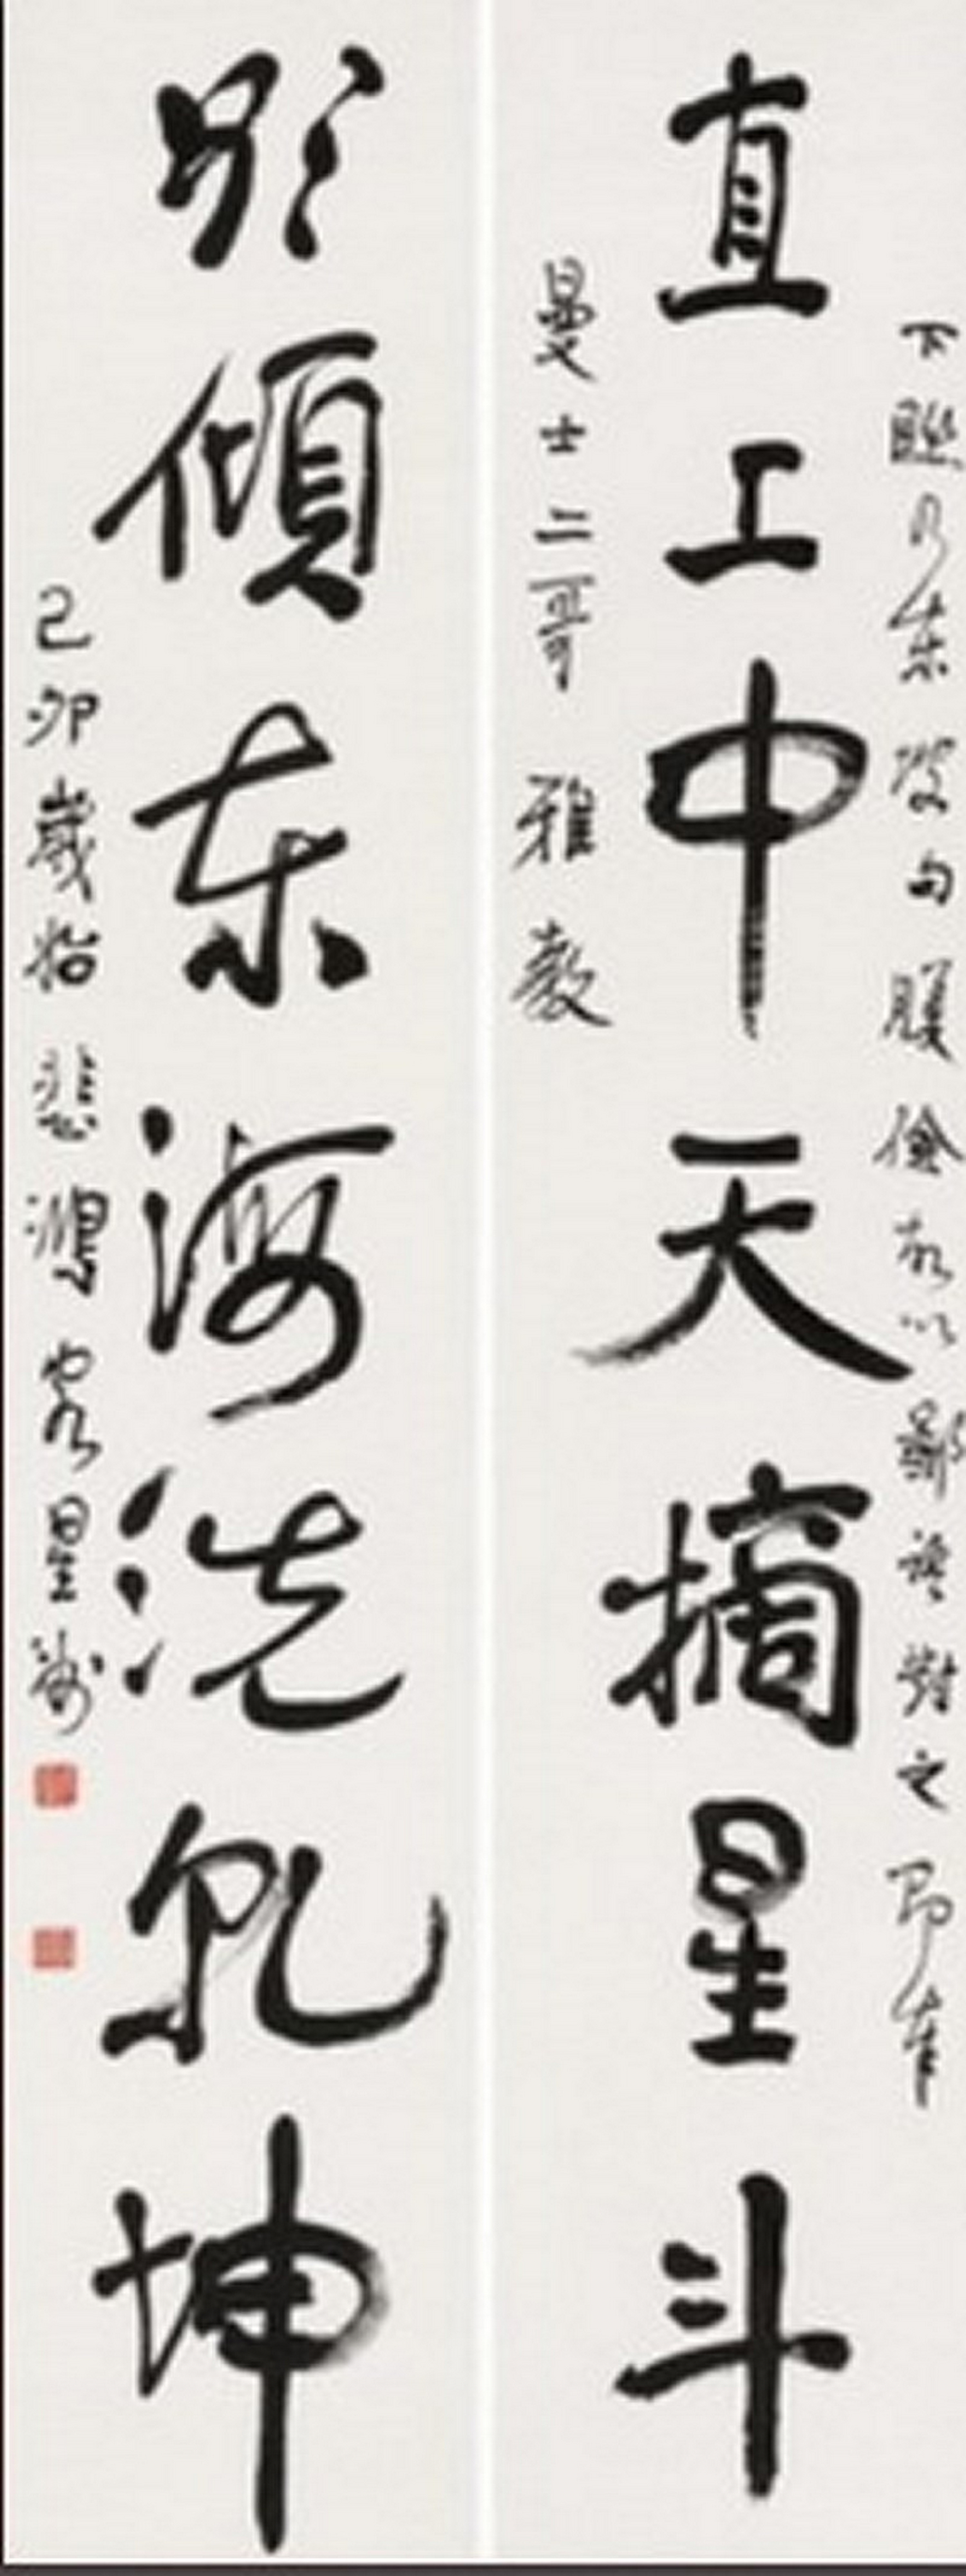 下聯乃東坡句腹儉故以鄙語對之 即奉
直上中天摘星斗
曼士二哥 雅教
欲傾東海洗乾坤
己卯歲始 悲鴻客星洲